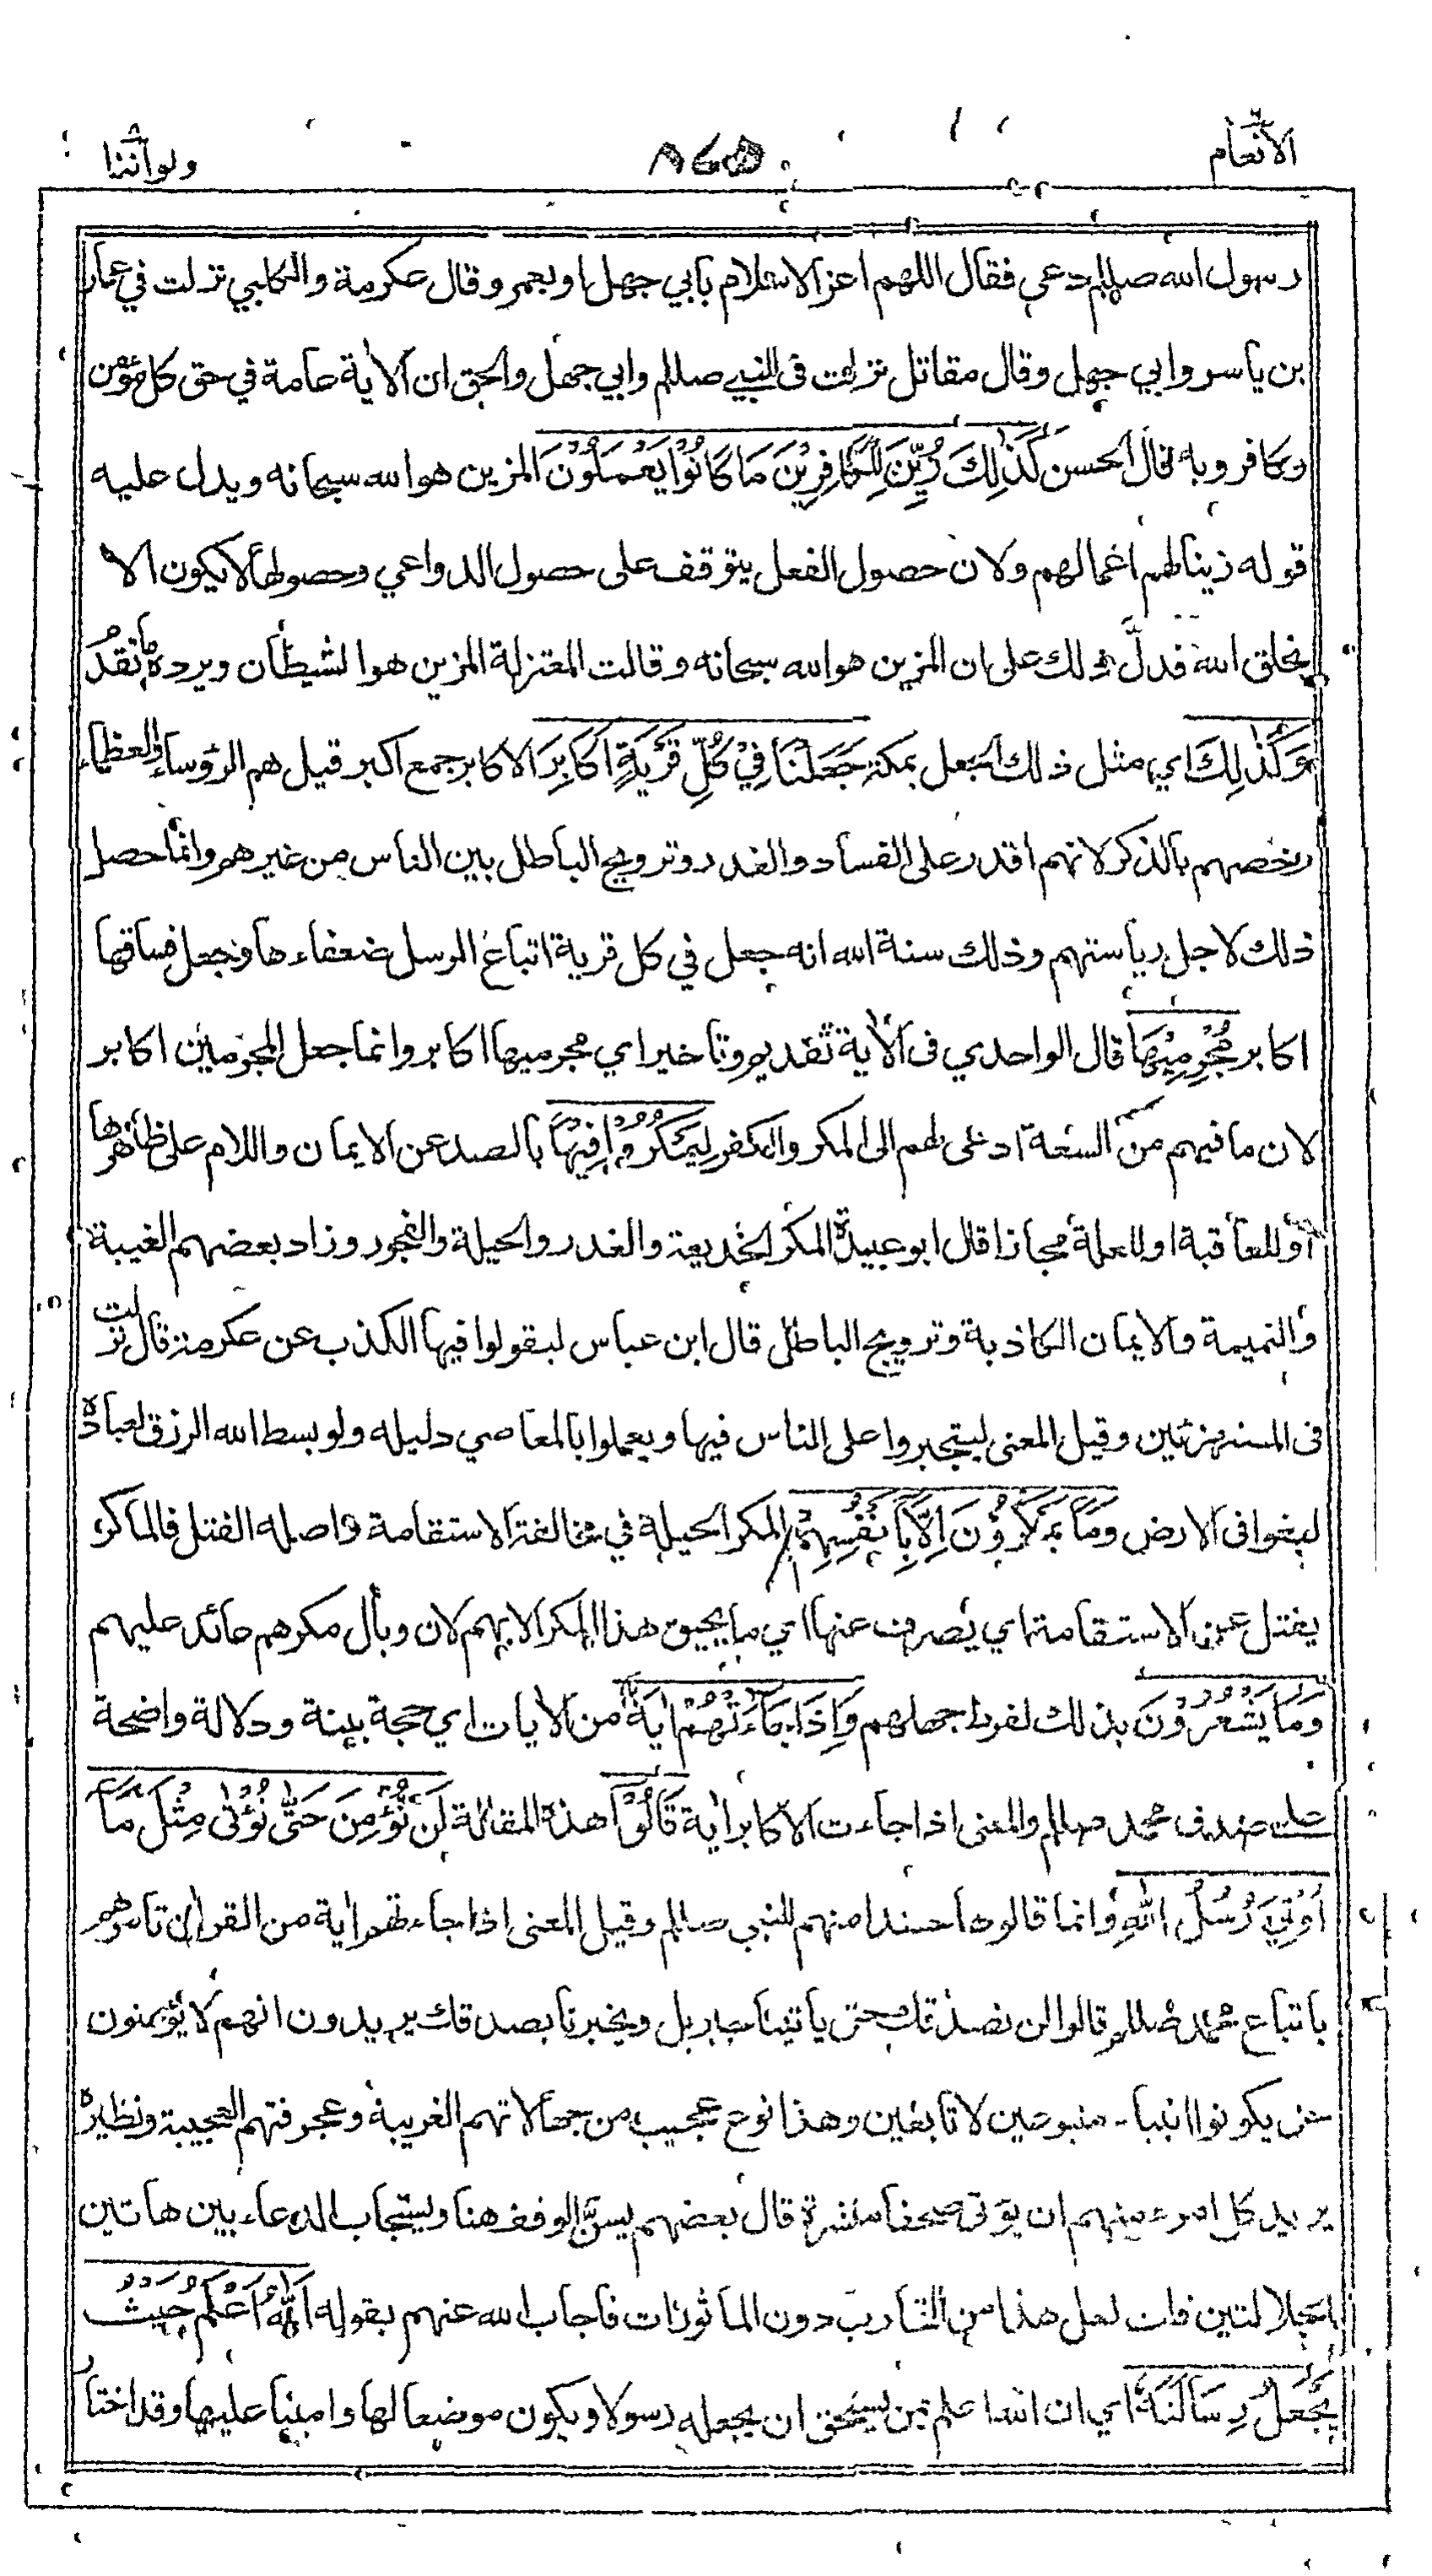 الانعام
ولواننا
رسول الله صللم دعى فقال اللهم اعز الاسلام بابي جهل او بعمر وقال عكرمة والكلبي نزلت في عمار
بن ياسر وابي جهل وقال مقاتل نزلت فى النبي صللم وابي جهل والحق ان الاية عامة في حق كل مؤمن
وكافر وبه قال الحسن كَذٰلِكَ زُيِّنَ لِلْكَافِرِيْنَ مَا كَانُوْا يَعْمَلُوْنَ المزين هو الله سبحانه ويدل عليه
قوله زينا لهم اعمالهم ولان حصول الفعل يتوقف على حصول الدواعي وحصولها لا يكون الا
بخلق الله فدلّ ذلك على ان المزين هو الله سبحانه وقالت المعتزلة المزين هو الشيطان ويرده ما تقدم
وَكَذٰلِكَ اي مثل ذلك الجعل بمكة جَعَلْنَا فِيْ كُلِّ قَرْيَةٍ اَكَابِرَ الاكابر جمع اكبر قيل هم الرؤساء والعظماء
وخصهم بالذكر لانهم اقدر على الفساد والغدر وترويج الباطل بين الناس من غيرهم وانما حصل
ذلك لاجل رياستهم وذلك سنة الله انه جعل في كل قرية اتباع الرسل ضعفاءها وجعل فساقها
اكابر مُجْرِمِيْهَا قال الواحدي فى الاية تقديم وتاخير اي مجرميها اكابر وانما جعل المجرمين اكابر
لان ما فيهم من السعة ادعى لهم الى المكر والكفر لِيَمْكُرُوْا فِيْهَا بالصد عن الايمان واللام على ظاهرها
او للعاقبة او للعلة مجازا قال ابو عبيدة المكر الخديعة والغدر والحيلة والفجور وزاد بعضهم الغيبة
والنميمة والايمان الكاذبة وترويج الباطل قال ابن عباس ليقولوا فيها الكذب عن عكرمة قال نزلت
فى المستهزئين وقيل المعنى ليتجبروا على الناس فيها ويعملوا بالمعاصي دليله ولو بسط الله الرزق لعباده
لبغوا فى الارض وَمَا يَمْكُرُوْنَ اِلَّا بِاَنْفُسِهِمْ المكر الحيلة في مخالفة الاستقامة واصله الفتل فالماكر
يفتل عن الاستقامة اي يصرف عنها اي ما يحيق هذا المكر الا بهم لان وبال مكرهم عائد عليهم
وَمَا يَشْعُرُوْنَ بذلك لفرط جهلهم وَاِذَا جَاءَتْهُمْ اٰيَةٌ من الايات اي حجة بينة ودلالة واضحة
على صدق محمد صللم والمعنى اذا جاءت الاكابر اية قَالُوْا هذه المقالة لَنْ نُّؤْمِنَ حَتّٰى نُؤْتٰى مِثْلَ مَا
اُوْتِيَ رُسُلُ اللّٰهِ وانما قالوها حسدا منهم للنبي صللم وقيل المعنى اذا جاءتهم اية من القران تامرهم
باتباع محمد صللم قالوا لن نصدقك حتى ياتينا جبريل ويخبرنا بصدقك يريدون انهم لا يؤمنون
حتى يكونوا انبياء متبوعين لا تابعين وهذا نوع عجيب من جهالاتهم الغريبة وعجرفتهم العجيبة ونظيره
يريد كل امرء منهم ان يؤتى صحفا منشرة قال بعضهم يسن الوقف هنا ويستجاب الدعاء بين هاتين
الجلالتين قلت لعل هذا من التجارب دون الماثورات فاجاب الله عنهم بقوله اَللّٰهُ اَعْلَمُ حَيْثُ
يَجْعَلُ رِسَالَتَهٗ اي ان الله اعلم بمن يستحق ان يجعله رسولا ويكون موضعا لها وامينا عليها وقد اختار